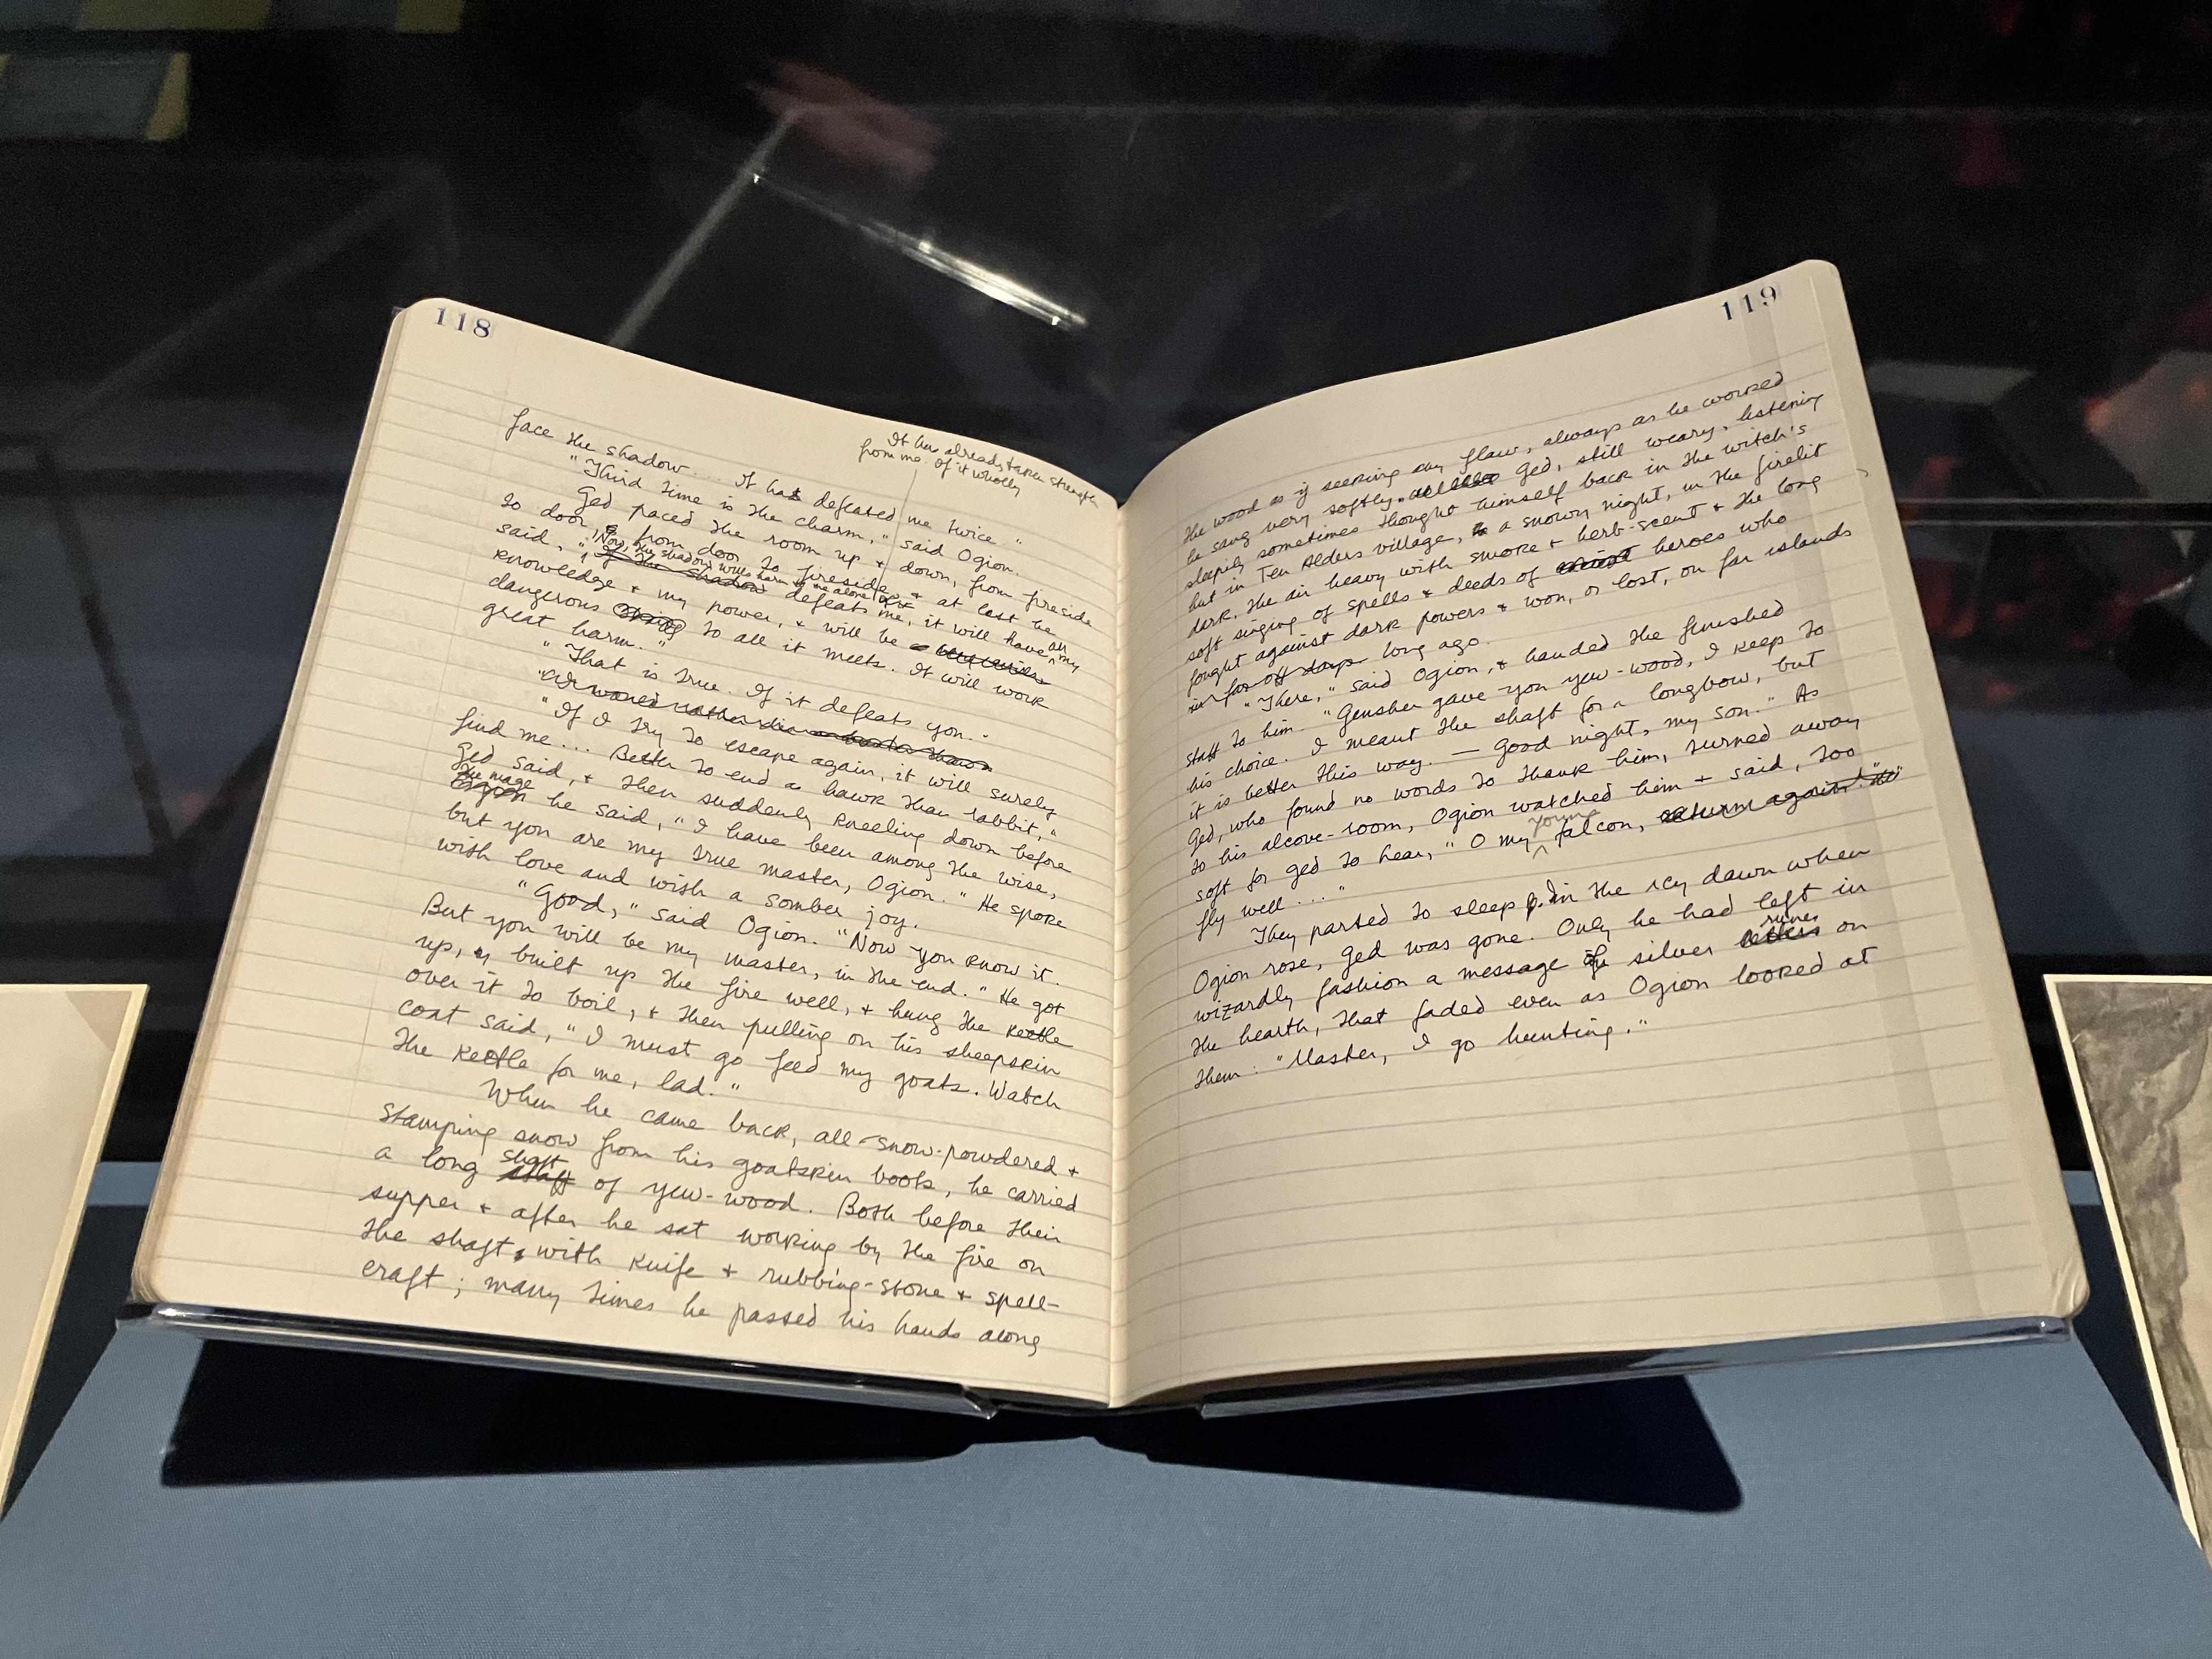 118
It has already taken strength
from me. of it wholly
face the shadow.... It has defeated me twice."
"Third time is the charm," said Ogion.
Ged paced the room up + down, from fireside
to door, from door to fireside, + at last he
"Now, the shadow will harm me alone
said, "if the shadow defeats me, it will have all my
knowledge + my power, + will be a
dangerous thing to all it meets. It will work
great harm."
"That is true. If it defeats you."
"I would rather die
"If I try to escape again, it will surely
find me... Better to end a hawk than rabbit,"
Ged said, + then suddenly kneeling down before
the mage
Ogion he said, "I have been among the wise,
but you are my true master, Ogion." He spoke
with love and with a somber joy.
"Good," said Ogion. "Now you know it.
But you will be my master, in the end." He got
up, built up the fire well, + hung the kettle
over it to boil, + then pulling on his sheepskin
coat said, "I must go feed my goats. Watch
the kettle for me, lad."
When he came back, all snow-powdered +
stamping snow from his goatskin boots, he carried
shaft
a long staff of yew-wood. Both before their
supper + after he sat working by the fire on
the shaft, with knife + rubbing-stone + spell-
craft; many times he passed his hands along
119
the wood as if seeking any flaw, always as he worked
he sang very softly. Ged, still weary, listening
sleepily sometimes thought himself back in the witch's
hut in Ten Alders village, a snowy night, in the firelit
dark, the air heavy with smoke + herb-scent + the long
soft singing of spells + deeds of heroes who
fought against dark powers + won, or lost, on far islands
in far off days long ago.
"There," said Ogion, + handed the finished
staff to him. "Gensher gave you yew-wood, I keep to
his choice. I meant the shaft for a longbow, but
it is better this way. — Good night, my son." As
Ged, who found no words to thank him, turned away
to his alcove-room, Ogion watched him + said, too
young
soft for Ged to hear, "O my falcon, return again."
fly well..."
They parted to sleep. In the icy dawn when
Ogion rose, Ged was gone. Only he had left in
runes
wizardly fashion a message of silver letters on
the hearth, that faded even as Ogion looked at
them: "Master, I go hunting."